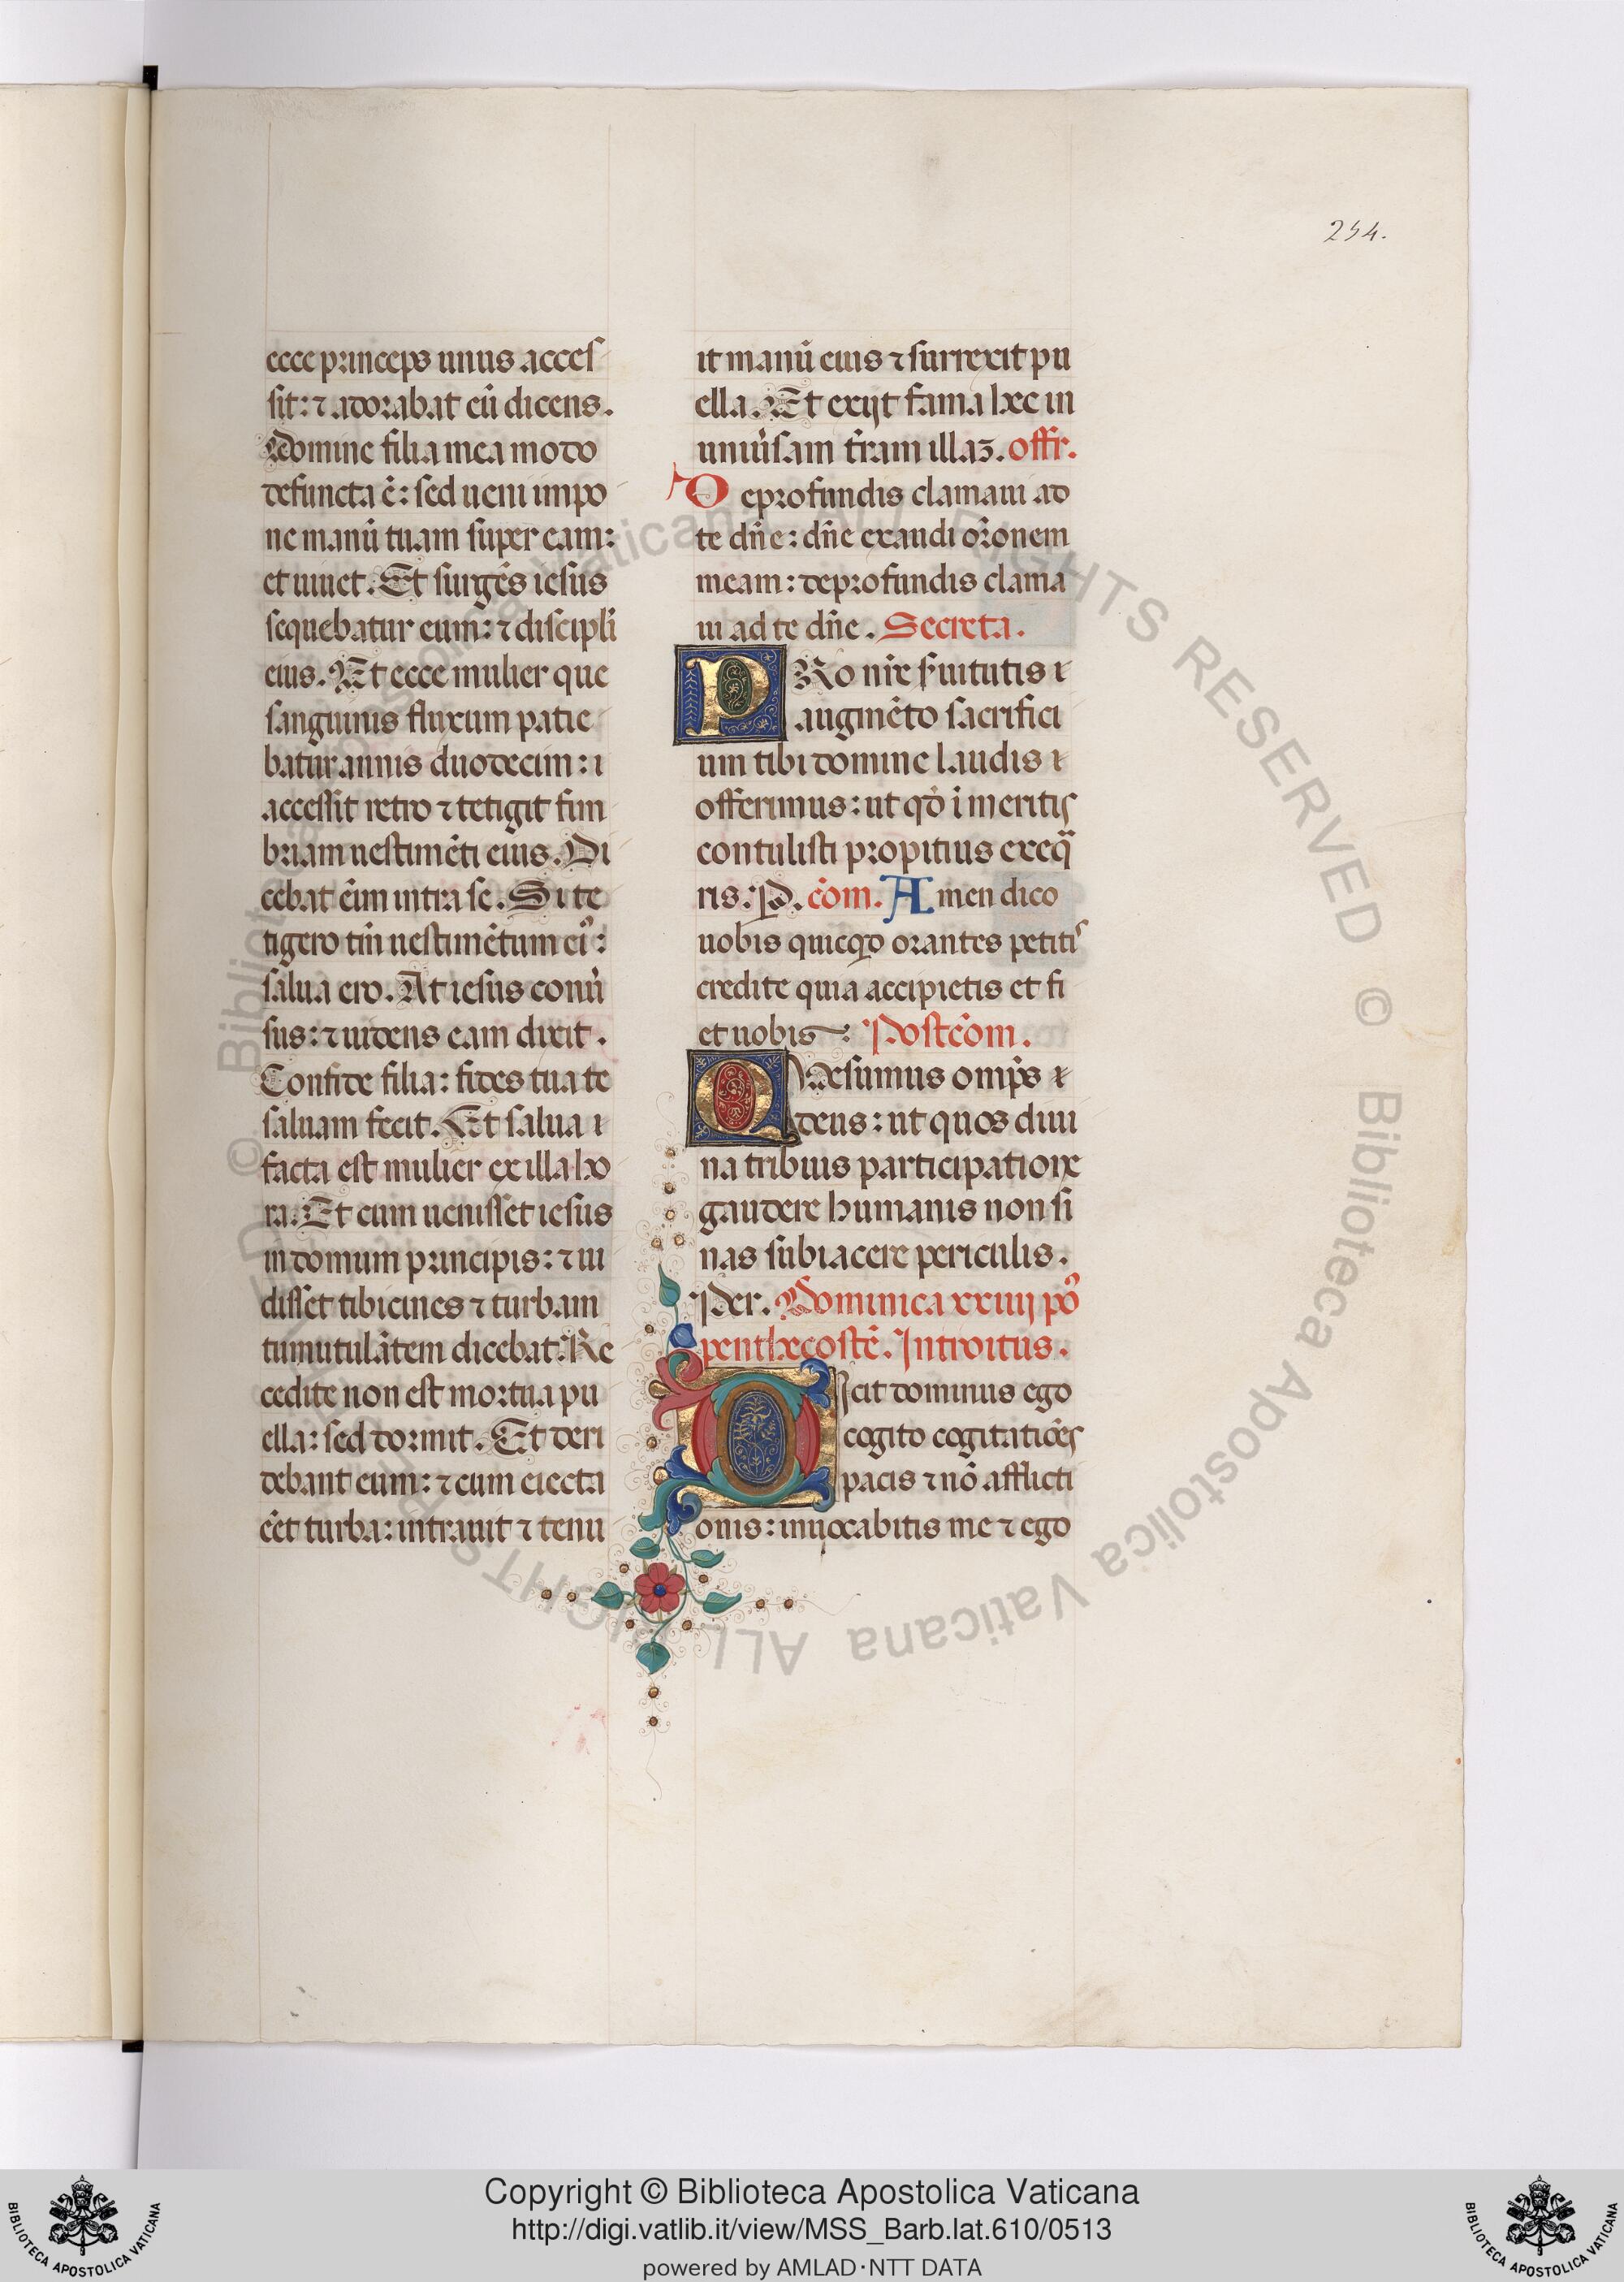 254.
ecce princeps unus acceſ
ſit: ⁊ adorabat eū dicens.
Domine filia mea modo
defuncta ē: ſed ueni impo
ne manū tuam ſuper eam:
et uiuet. Et ſurgēs ieſus
ſequebatur eum: ⁊ diſcipli
eius. Et ecce mulier que
ſanguinis fluxum patie
batur annis duodecim: ⁊
acceſſit retro ⁊ tetigit fim
briam ueſtimēti eius. Di
cebat eīm intra ſe. Si te
tigero tm̄ ueſtimētum eiꝰ:
ſalua ero. At ieſus conu̾
ſus: ⁊ uidens eam dixit.
Confide filia: fides tua te
ſaluam fecit. Et ſalua ⁊
facta eſt mulier ex illa ho
ra. Et cum ueniſſet ieſus
in domum principis: ⁊ ui
diſſet tibicines ⁊ turbam
tumutulātem dicebat. Re
cedite non eſt mortua pu
ella: ſed dormit. Et deri
debant eum: ⁊ cum eiecta
eēt turba: intrauit ⁊ tenu
it manū eius ⁊ ſurrexit pu
ella. Et exijt fama hec in
uniu̾ſam tr̄am illaꝫ. offr.
De profundis clamaui ad
te dn̄e: dn̄e exaudi or̄onem
meam: de profundis clama
ui ad te dn̄e. Secreta.
PRo nr̄e ſ̾uitutis ⁊
augmēto ſacrifici
um tibi domine laudis ⁊
offerimus: ut qd̄ ī meritis
contuliſti propitius exeqͣ
ris. P. cōm. Amen dico
uobis quicqd̄ orantes petitiˢ
credite quia accipietis et fi
et uobis: Poſtcōm.
QVeſumus omp̄s ⁊
deus: ut quos diui
na tribuis participatione
gaudere humanis non ſi
nas ſubiacere periculis.
Per. Dominica xxiiij poꝰ
penthecoſtē. Introitus.
DIcit dominus ego
cogito cogitatiōes
pacis ⁊ nō afflicti
onis: inuocabitis me ⁊ ego
© Biblioteca Apostolica Vaticana ALL RIGHTS RESERVED © Biblioteca Apostolica Vaticana ALL RIGHTS RESERVED
Copyright © Biblioteca Apostolica Vaticana
http://digi.vatlib.it/view/MSS_Barb.lat.610/0513
powered by AMLAD·NTT DATA
BIBLIOTECA APOSTOLICA VATICANA
BIBLIOTECA APOSTOLICA VATICANA